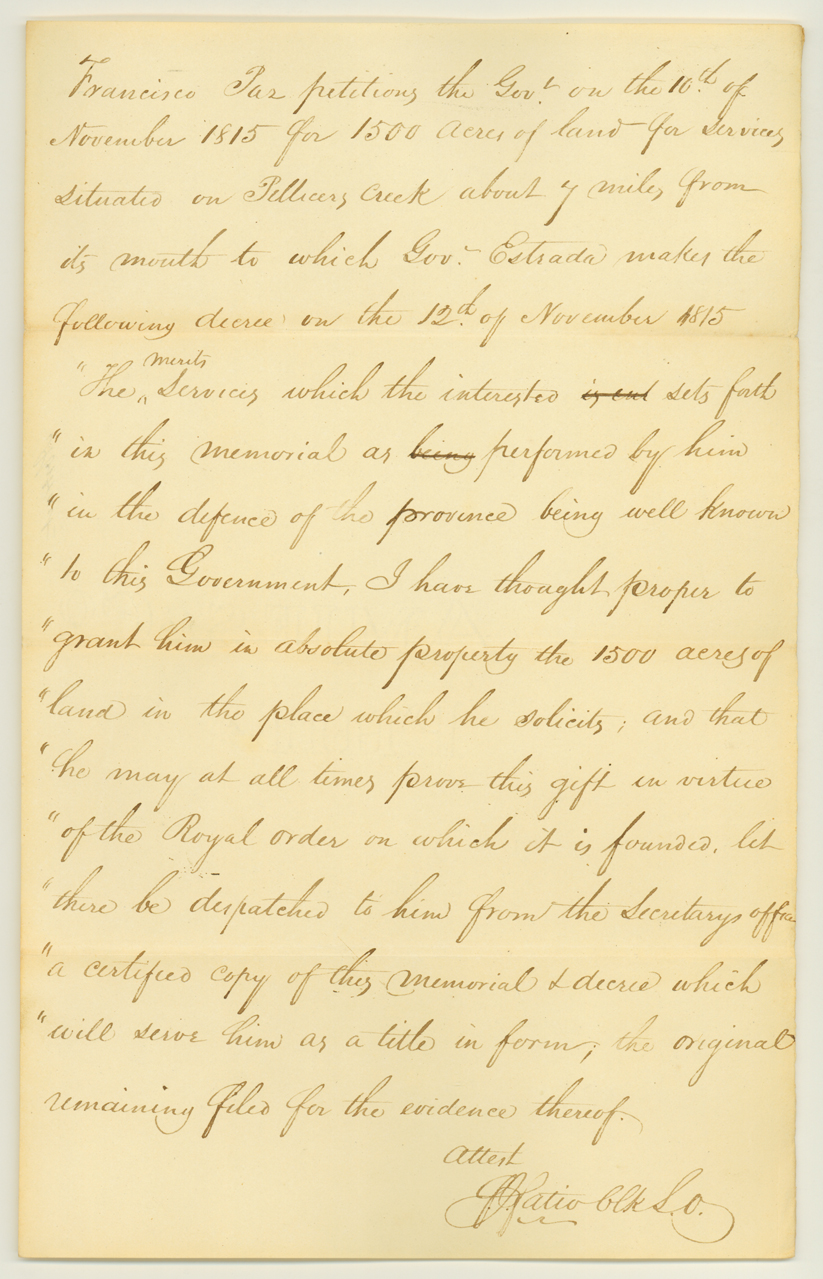 Francisco Paz petitions the Govt. on the 10th. of
November 1815 for 1500 acres of land for services
situated on Pellicers Creek about 7 miles from
its mouth to which Govr. Estrada makes the
following decree on the 12th. of November 1815
merits
"The " Services which the interested sets forth
"in this memorial as being performed by him
"in the defence of the province being well known
"to this Government, I have thought proper to
"grant him in absolute property the 1500 acres of
"land in the place which he solicits; and that
"he may at all times prove this gift in virtue
"of the Royal order on which it is founded, let
"there be despatched to him from the Secretarys office
"a certified copy of this memorial & decree which
"will serve him as a title in form; the original
remaining filed for the evidence thereof.
Attest
Clk L.O.